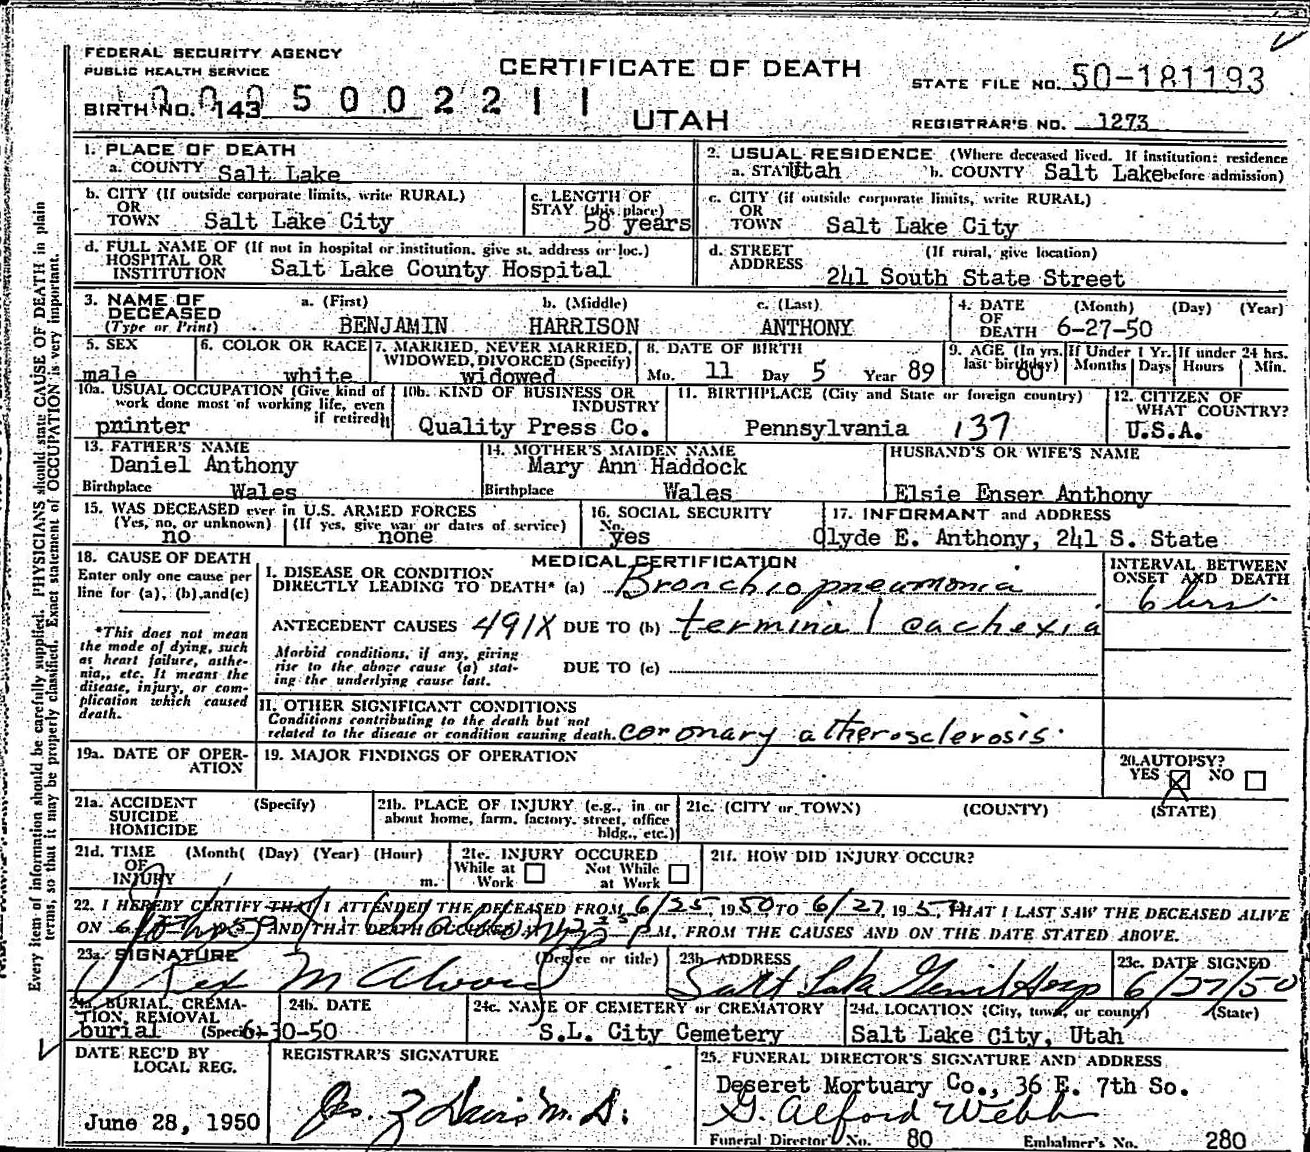 FEDERAL SECURITY AGENCY
PUBLIC HEALTH SERVICE
CERTIFICATE OF DEATH
STATE FILE NO. 50-181193
BIRTH NO. 143 0005002211
UTAH
REGISTRAR'S NO. 1273
1. PLACE OF DEATH
a. COUNTY Salt Lake
2. USUAL RESIDENCE (Where deceased lived. If institution: residence
a. STATE Utah b. COUNTY Salt Lake before admission)
b. CITY (If outside corporate limits, write RURAL)
OR
TOWN Salt Lake City
c. LENGTH OF
STAY (this place)
58 years
c. CITY (if outside corporate limits, write RURAL)
OR
TOWN Salt Lake City
d. FULL NAME OF (If not in hospital or institution, give st. address or loc.)
HOSPITAL OR
INSTITUTION Salt Lake County Hospital
d. STREET (If rural, give location)
ADDRESS
241 South State Street
3. NAME OF a. (First) b. (Middle) c. (Last)
DECEASED
(Type or Print) BENJAMIN HARRISON ANTHONY
4. DATE (Month) (Day) (Year)
OF
DEATH 6-27-50
5. SEX
male
6. COLOR OR RACE
white
7. MARRIED, NEVER MARRIED,
WIDOWED, DIVORCED (Specify)
widowed
8. DATE OF BIRTH
Mo. 11 Day 5 Year 89
9. AGE (In yrs.
last birthday)
60
If Under 1 Yr.
Months Days
If under 24 hrs.
Hours Min.
10a. USUAL OCCUPATION (Give kind of
work done most of working life, even
if retired)
printer
10b. KIND OF BUSINESS OR
INDUSTRY
Quality Press Co.
11. BIRTHPLACE (City and State or foreign country)
Pennsylvania 137
12. CITIZEN OF
WHAT COUNTRY?
U.S.A.
13. FATHER'S NAME
Daniel Anthony
Birthplace Wales
14. MOTHER'S MAIDEN NAME
Mary Ann Haddock
Birthplace Wales
HUSBAND'S OR WIFE'S NAME
Elsie Enser Anthony
15. WAS DECEASED ever in U.S. ARMED FORCES
(Yes, no, or unknown) (If yes, give war or dates of service)
no none
16. SOCIAL SECURITY
No.
yes
17. INFORMANT and ADDRESS
Clyde E. Anthony, 241 S. State
18. CAUSE OF DEATH
Enter only one cause per
line for (a), (b), and (c)
*This does not mean
the mode of dying, such
as heart failure, asthe-
nia,, etc. It means the
disease, injury, or com-
plication which caused
death.
MEDICAL CERTIFICATION
I. DISEASE OR CONDITION
DIRECTLY LEADING TO DEATH* (a) Bronchiopneumonia
ANTECEDENT CAUSES 491X DUE TO (b) terminal cachexia
Morbid conditions, if any, giving
rise to the above cause (a) stat-
ing the underlying cause last.
DUE TO (c)
INTERVAL BETWEEN
ONSET AND DEATH
6 hrs.
II. OTHER SIGNIFICANT CONDITIONS
Conditions contributing to the death but not
related to the disease or condition causing death. coronary atherosclerosis.
19a. DATE OF OPER-
ATION
19. MAJOR FINDINGS OF OPERATION
20. AUTOPSY?
YES X NO
21a. ACCIDENT (Specify)
SUICIDE
HOMICIDE
21b. PLACE OF INJURY (e.g., in or
about home, farm, factory, street, office
bldg., etc.)
21c. (CITY or TOWN) (COUNTY) (STATE)
21d. TIME (Month( (Day) (Year) (Hour)
OF
INJURY m.
21e. INJURY OCCURED
While at Work Not While at Work
21f. HOW DID INJURY OCCUR?
22. I HEREBY CERTIFY THAT I ATTENDED THE DECEASED FROM 6/25, 1950 TO 6/27, 1950, THAT I LAST SAW THE DECEASED ALIVE
ON AND THAT DEATH OCCURRED AT P M. FROM THE CAUSES AND ON THE DATE STATED ABOVE.
23a. SIGNATURE (Degree or title)
23b. ADDRESS
Salt Lake
23c. DATE SIGNED
6/27/50
24a. BURIAL, CREMA-
TION, REMOVAL
burial (Specify)
24b. DATE
6-30-50
24c. NAME OF CEMETERY or CREMATORY
S.L. City Cemetery
24d. LOCATION (City, town, or county) (State)
Salt Lake City, Utah
DATE REC'D BY
LOCAL REG.
June 28, 1950
REGISTRAR'S SIGNATURE
M.D.
25. FUNERAL DIRECTOR'S SIGNATURE AND ADDRESS
Deseret Mortuary Co., 36 E. 7th So.
G. Alford Webb
Funeral Director No. 80 Embalmer's No. 280
Every item of information should be carefully supplied. PHYSICIANS should state CAUSE OF DEATH in plain
terms, so that it may be properly classified. Exact statement of OCCUPATION is very important.